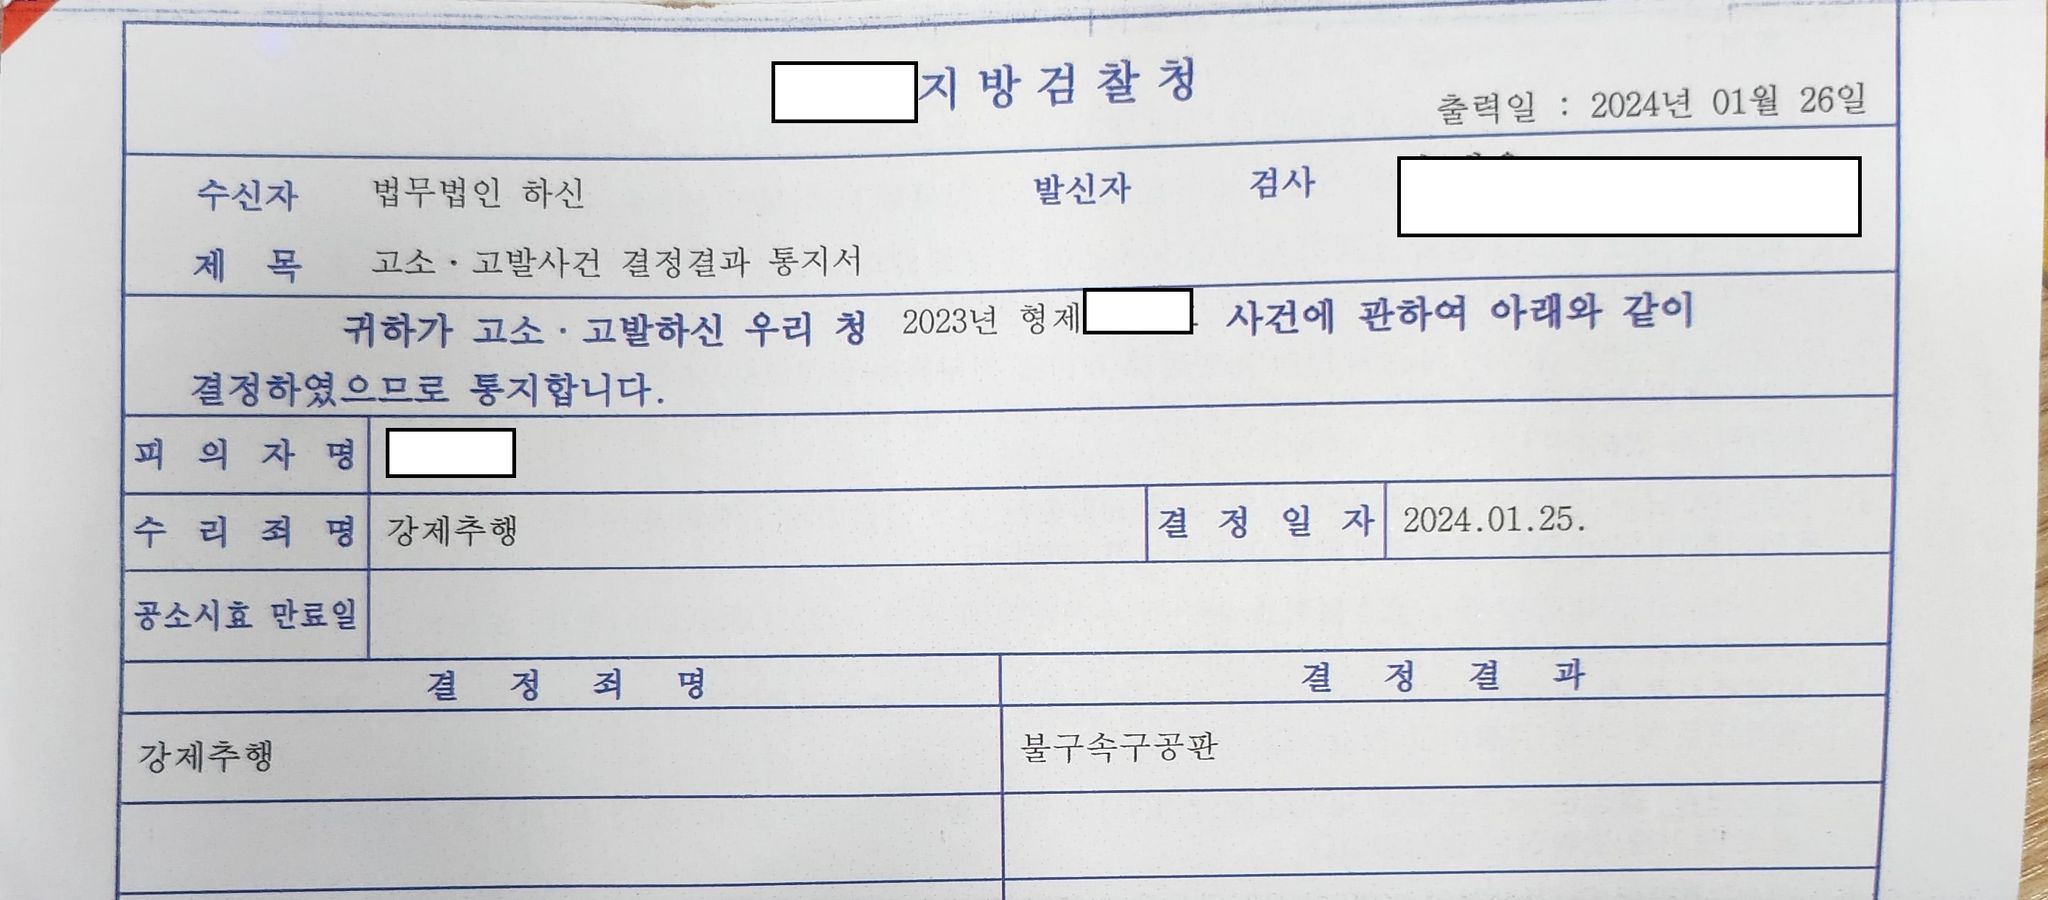 지방검찰청
출력일 : 2024년 01월 26일
수신자 법무법인 하신 발신자 검사
제 목 고소·고발사건 결정결과 통지서
귀하가 고소·고발하신 우리 청 2023년 형제 사건에 관하여 아래와 같이
결정하였으므로 통지합니다.
피 의 자 명
수 리 죄 명 강제추행 결 정 일 자 2024.01.25.
공소시효 만료일
결 정 죄 명 결 정 결 과
강제추행 불구속구공판